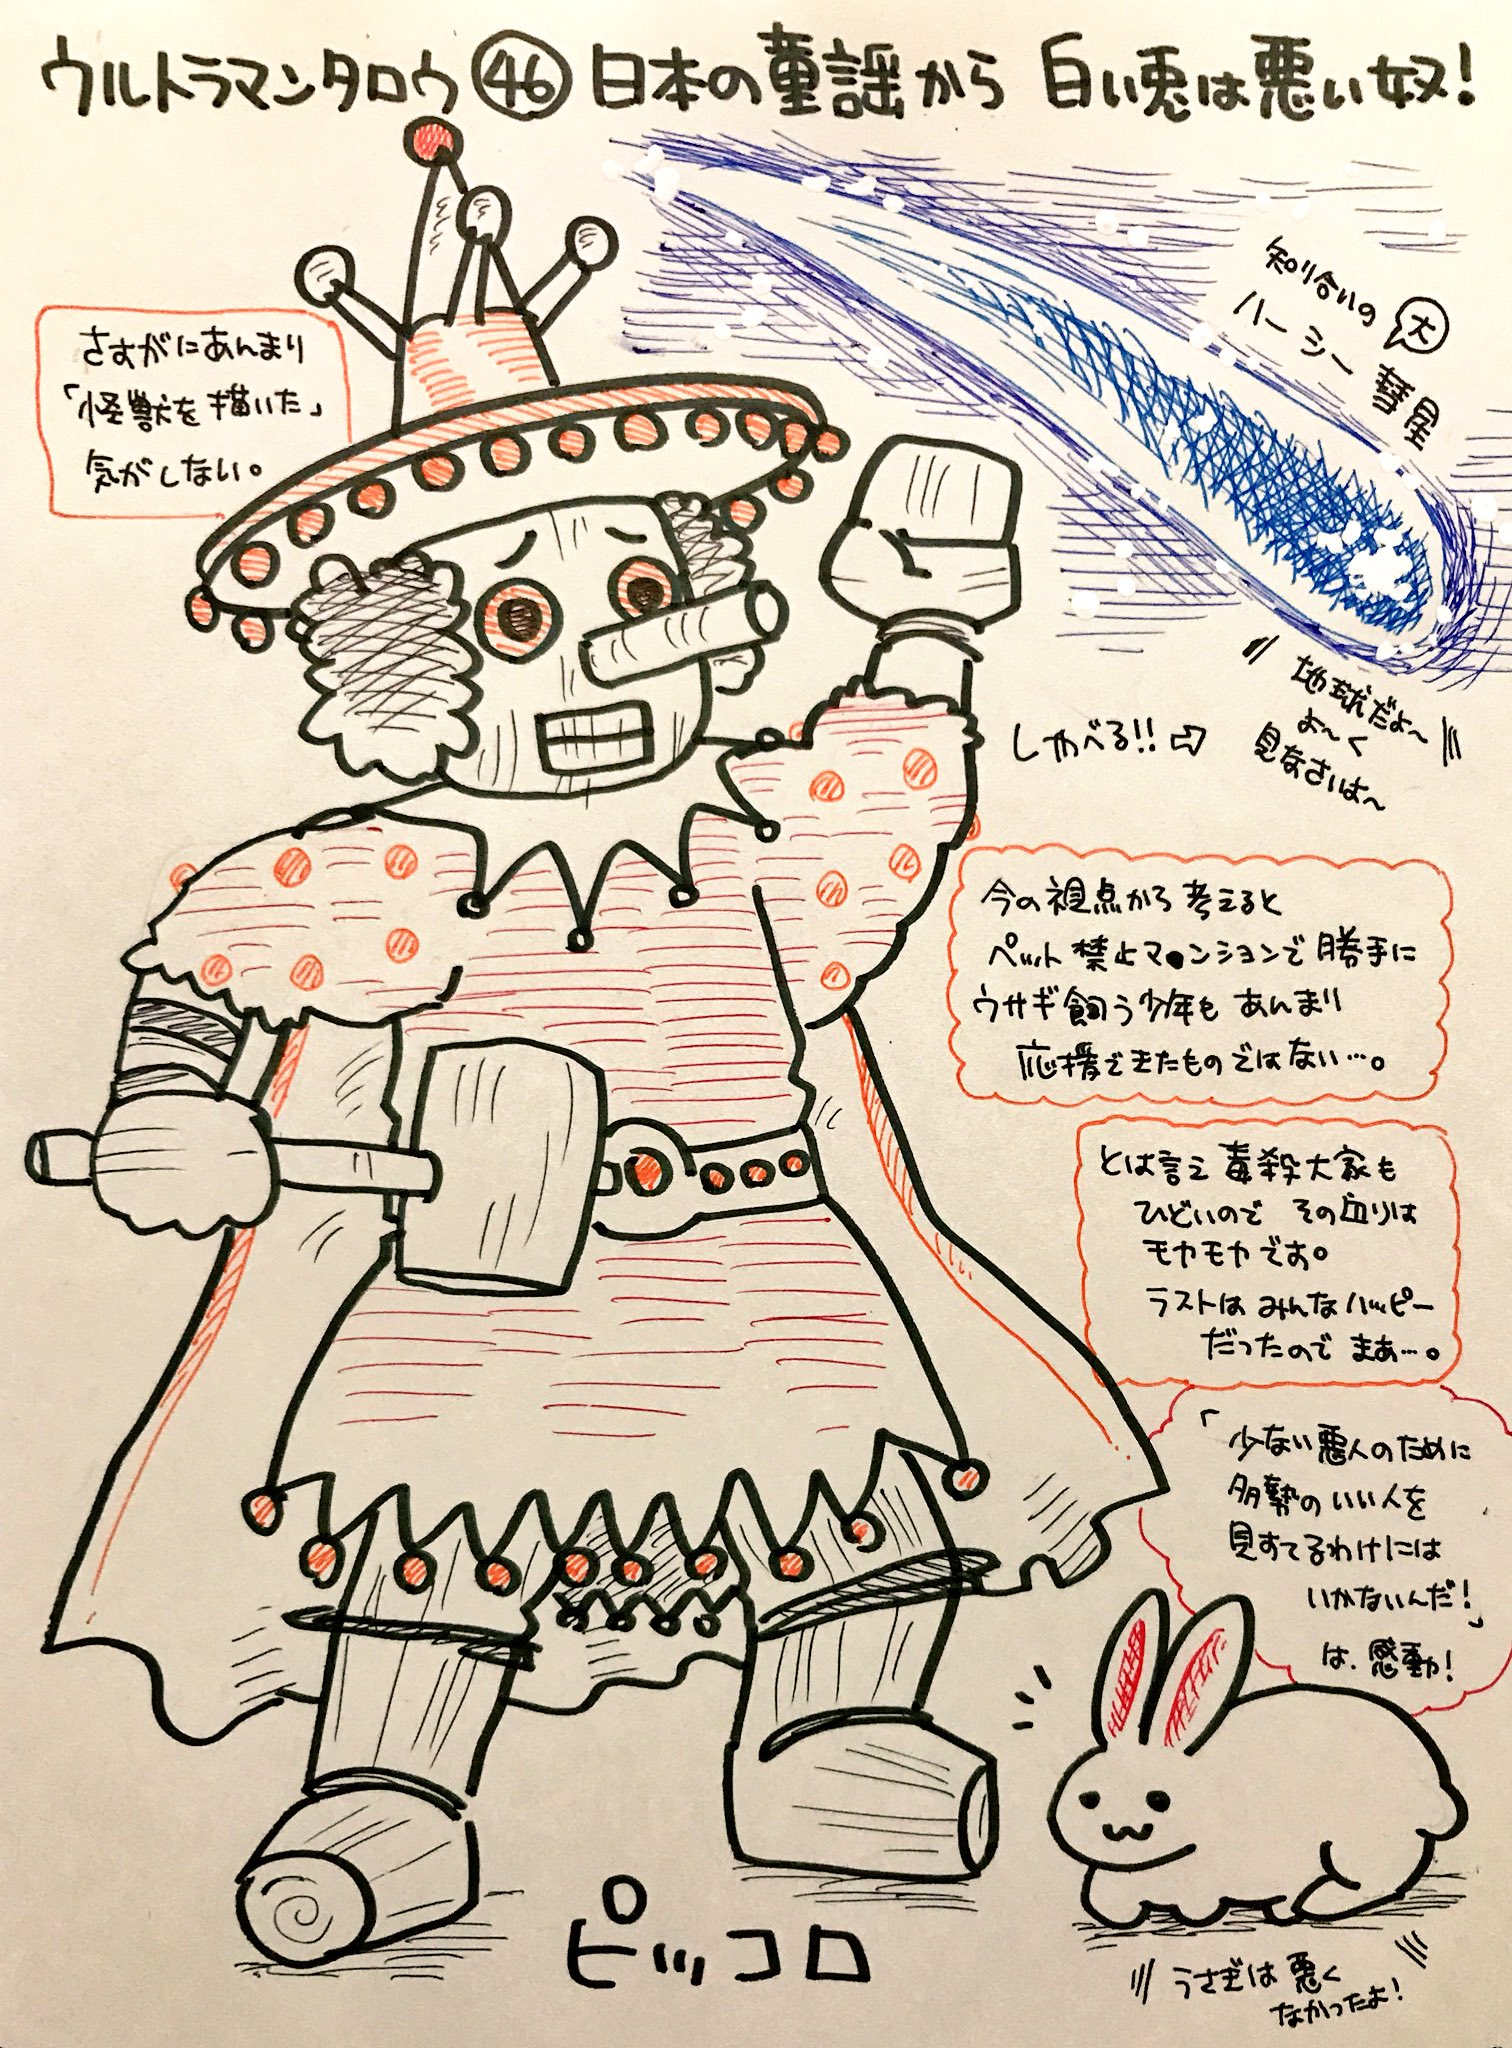 ウルトラマンタロウ㊻日本の童謡から 白い兎は悪い奴!
知り合いの
ハーシー大彗星
さすがにあんまり
「怪獣を描いた」
気がしない。
しゃべる!!⇨
地球だよ〜
よ〜く
見なさいよ〜
今の視点から考えると
ペット禁止マンションで勝手に
ウサギ飼う少年もあんまり
応援できたものではない…。
とは言え毒殺大家も
ひどいので その辺りは
モヤモヤです。
ラストはみんなハッピー
だったのでまあ…。
「少ない悪人のために
多勢のいい人を
見すてるわけには
いかないんだ!」
は、感動!
ピッコロ
うさぎは悪く
なかったよ!